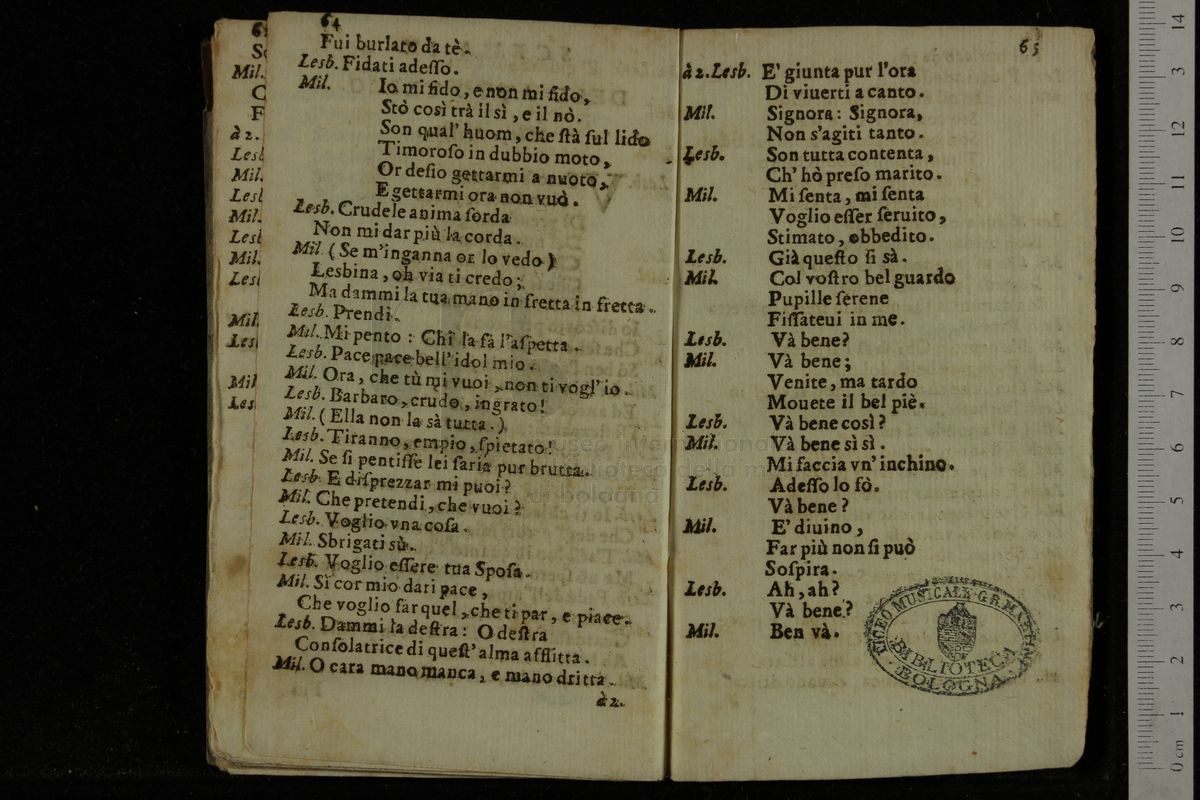 64
Fui burlato da tè.
Lesb. Fidati adeſſo.
Mil. Io mi fido, e non mi fido,
Stò così trà il sì, e il nò.
Son qual' huom, che ſtà ſul lido
Timoroſo in dubbio moto,
Or deſio gettarmi a nuoto,
E gettarmi ora non vuò.
Lesb. Crudele anima ſorda
Non mi dar più la corda.
Mil. (Se m'inganna or lo vedo)
Lesbina, oh via ti credo;
Ma dammi la tua mano in fretta in fretta.
Lesb. Prendi.
Mil. Mi pento: Chi la fà l'aſpetta.
Lesb. Pace pace bell'idol mio.
Mil. Ora, che tù mi vuoi, non ti vogl' io.
Lesb. Barbaro, crudo, ingrato!
Mil. (Ella non la sà tutta.)
Lesb. Tiranno, empio, ſpietato!
Mil. Se ſi pentiſſe lei ſaria pur brutta.
Lesb. E diſprezzar mi puoi?
Mil. Che pretendi, che vuoi?
Lesb. Voglio vna coſa.
Mil. Sbrigati sù.
Lesb. Voglio eſſere tua Spoſa.
Mil. Sì cor mio dari pace,
Che voglio far quel, che ti par, e piace.
Lesb. Dammi la deſtra: O deſtra
Conſolatrice di queſt'alma afflitta.
Mil. O cara mano manca, e mano dritta.
à 2.
65
à 2. Lesb. E' giunta pur l'ora
Di viuerti a canto.
Mil. Signora: Signora,
Non s'agiti tanto.
Lesb. Son tutta contenta,
Ch' hò preſo marito.
Mil. Mi ſenta, mi ſenta
Voglio eſſer ſeruito,
Stimato, obbedito.
Lesb. Già queſto ſi sà.
Mil. Col voſtro bel guardo
Pupille ſerene
Fiſſateui in me.
Lesb. Và bene?
Mil. Và bene;
Venite, ma tardo
Mouete il bel piè.
Lesb. Và bene così?
Mil. Và bene sì sì.
Mi faccia vn' inchino.
Lesb. Adeſſo lo fò.
Và bene?
Mil. E' diuino,
Far più non ſi può
Soſpira.
Lesb. Ah, ah?
Và bene?
Mil. Ben và.
LICEO MUSICALE G.B. MARTINI
BIBLIOTECA
BOLOGNA